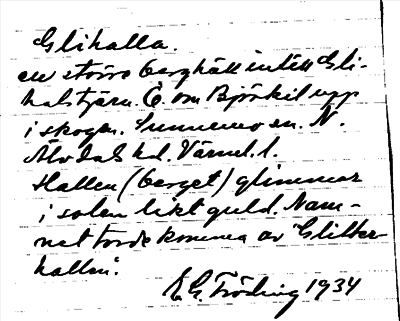 Glihalla.
en större berghäll intill Gli-
halstjärn. Ö. om Björkil upp
i skogen. Sunnemo sn. N.
Älvdals hd. Värml. l.
Hallen (berget) glimmar
i solen likt guld. Nam-
net torde komma av "Glitter
hallen".
E. G. Fröding 1934